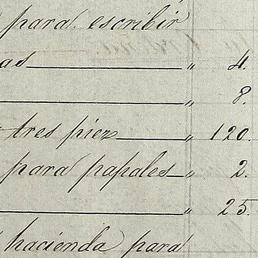 para escribir
as " 4.
" 8.
tres piez " 120.
para papales " 2.
" 25.
hacienda para